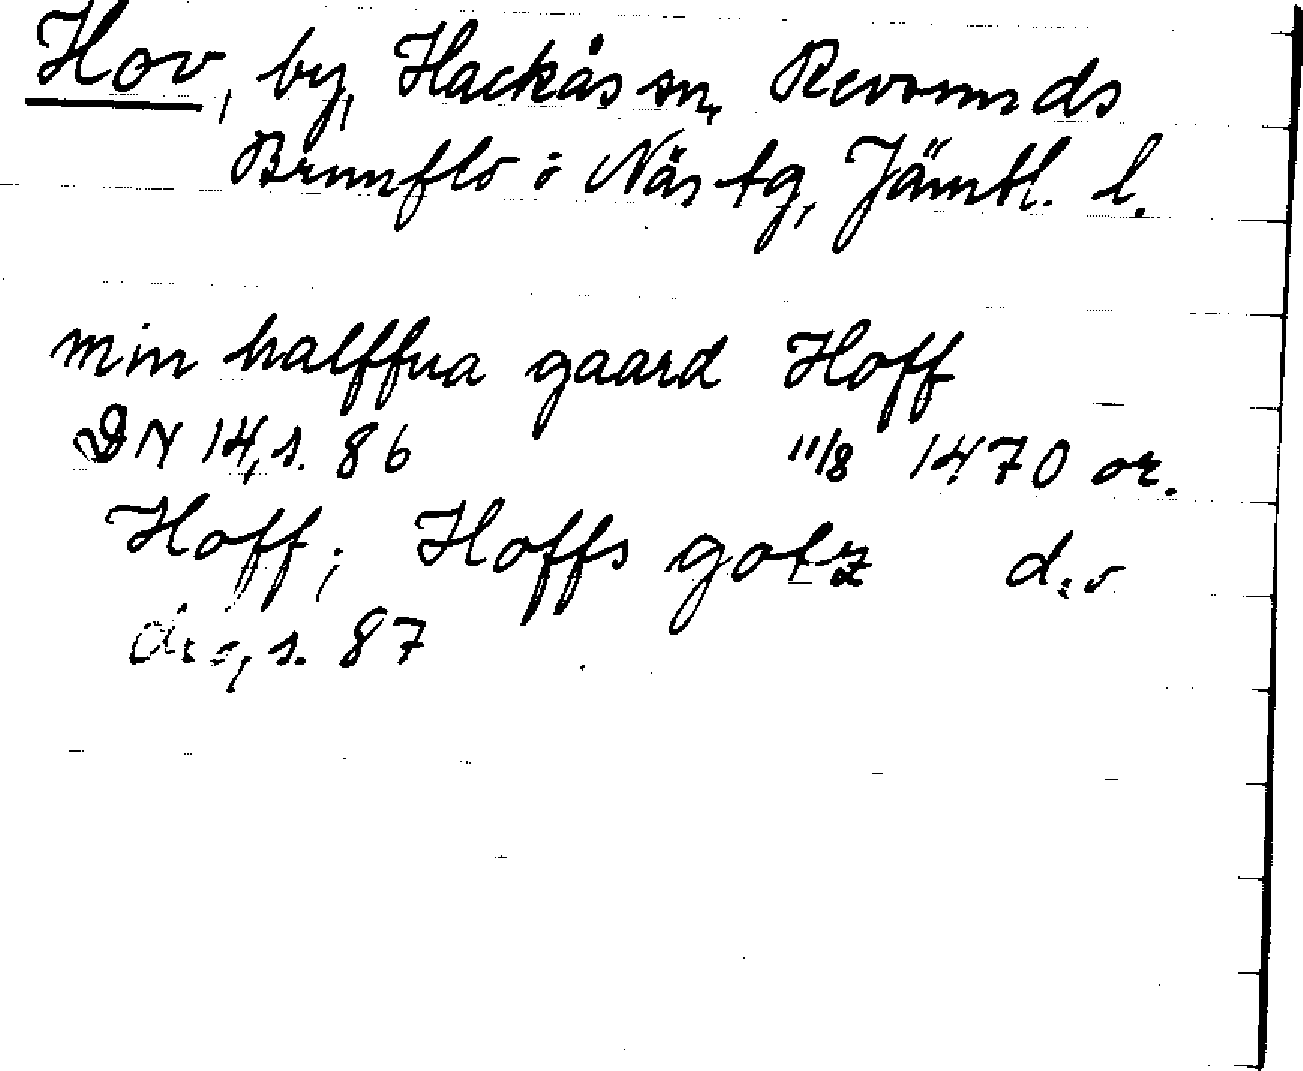 Hov, by, Hackås sn, Revsunds
Brunflo o Näs tg, Jämtl. l.
min halffua gaard Hoff
DN 14, s. 86 11/8 1470 or.
Hoff; Hoffs gotz d:o
d:o, s. 87